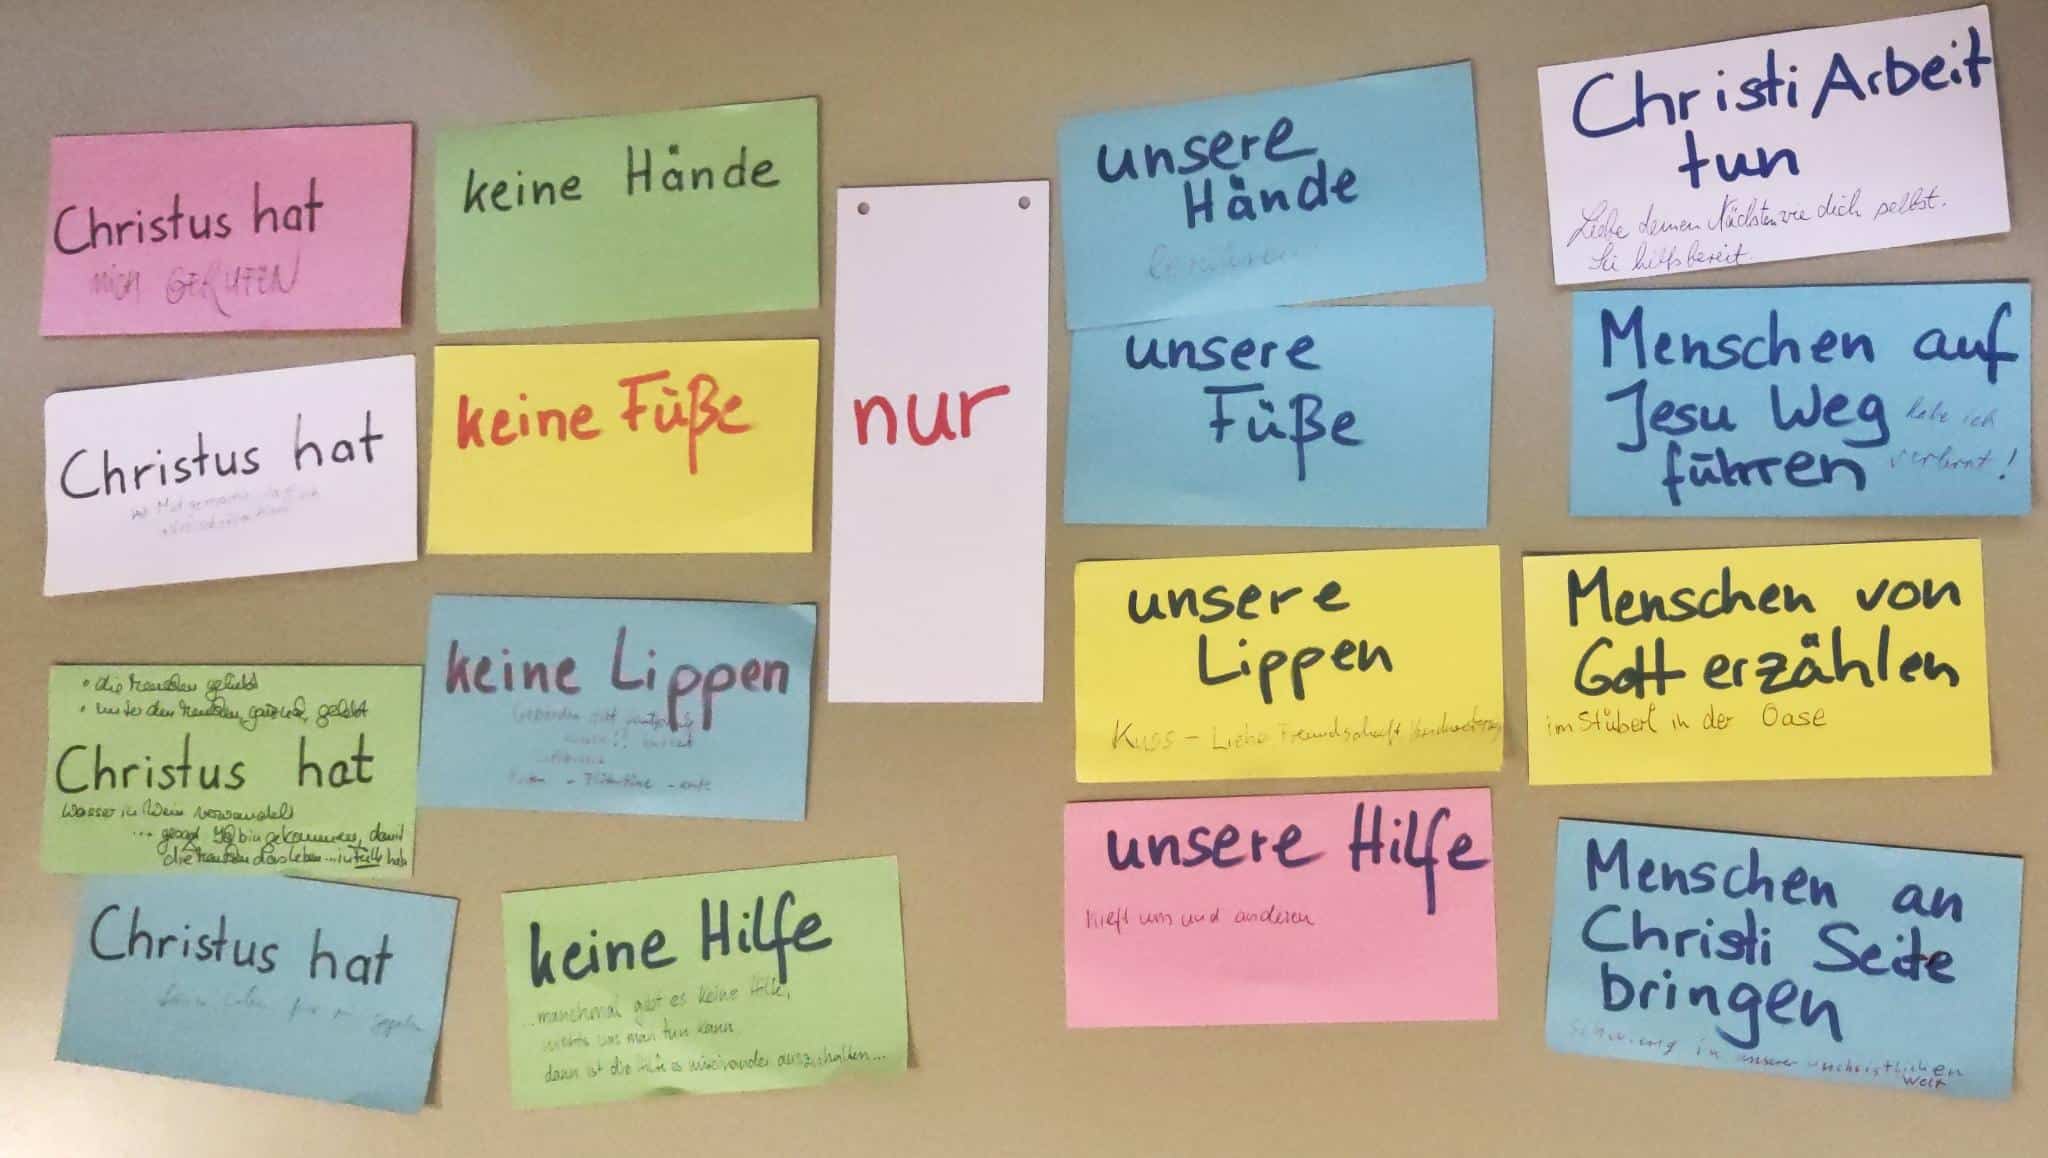 Christus hat
mich GERUFEN
Christus hat
• die Menschen geliebt
• unter den Menschen gelebt
Christus hat
Wasser in Wein verwandelt
... gesagt Ich bin gekommen, damit
die Menschen das Leben ... in Fülle haben
Christus hat
keine Hände
keine Füße
keine Lippen
keine Hilfe
...manchmal gibt es keine Hilfe,
nichts was man tun kann
dann ist die Hilfe es miteinander auszuhalten...
nur
unsere
Hände
berühren
unsere
Füße
unsere
Lippen
Kuss - Liebe Freundschaft
unsere Hilfe
hilft uns und anderen
Christi Arbeit
tun
Liebe deinen Nächsten wie dich selbst.
Sei hilfsbereit.
Menschen auf
Jesu Weg habe ich
führen verlernt!
Menschen von
Gott erzählen
im Stüberl in der Oase
Menschen an
Christi Seite
bringen
Schwierig in unserer unchristlichen
Welt